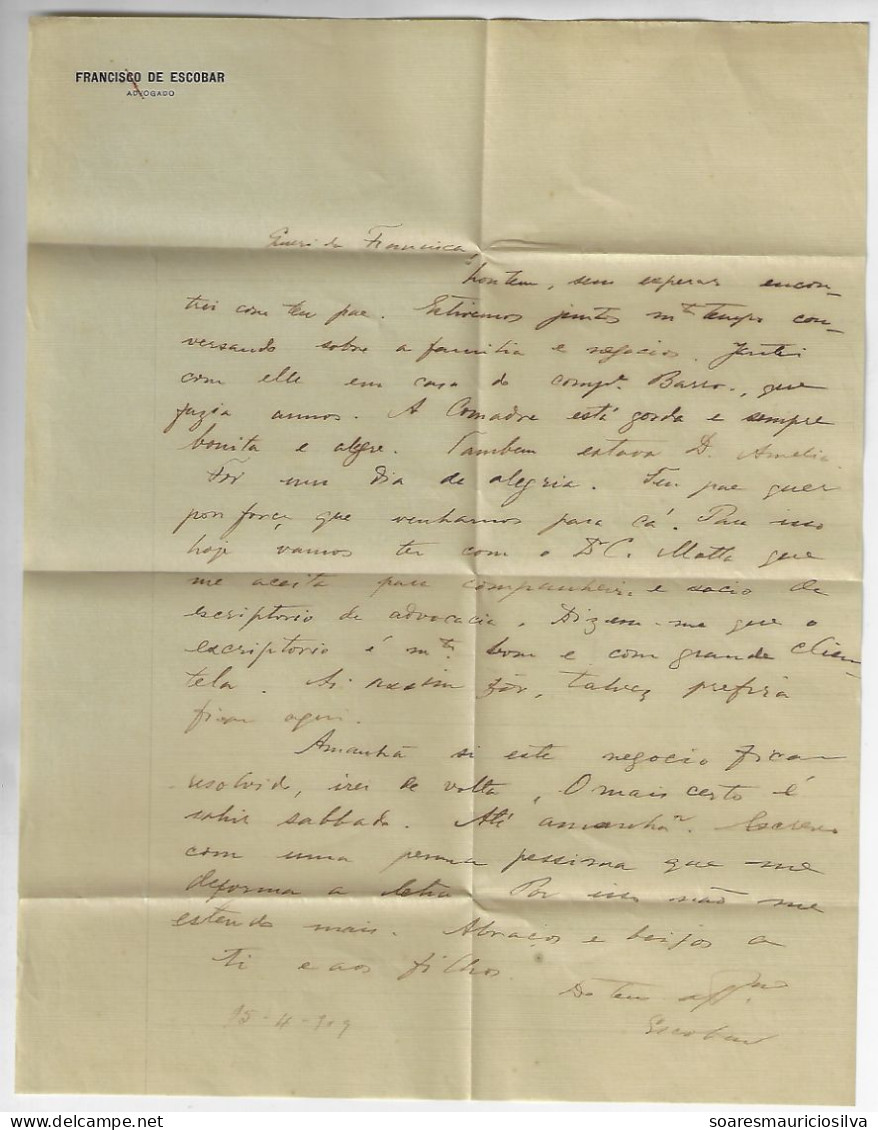 FRANCISCO DE ESCOBAR
ADVOGADO
Querida Francisca,
hontem, sem esperar encon-
trei com teu pae. Estivemos juntos mto tempo con-
versando sobre a familia e negocios. Jantei
com elle em casa do compe. Barros, que
fazia annos. A Comadre está gorda e sempre
bonita e alegre. Tambem estava D. Amelia.
Fôr um dia de alegria. Teu pae quer
por força que venhamos para cá. Para isso
hoje vamos ter com o Dr C. Motta que
me aceita para companheiro e socio de
escriptorio de advocacia. Dizem-me que o
escriptorio é mto bom e com grande clien-
tela. Si assim fôr, talvez prefira
ficar aqui.
Amanhã si este negocio ficar
resolvido, irei de volta. O mais certo é
sahir sabbado. Até amanhã. Escrevo
com uma penna pessima que me
deforma a letra. Por isso não me
estendo mais. Abraços e beijos a
ti e aos filhos.
Do teu
Escobar
15-4-909
soaresmauriciosilva